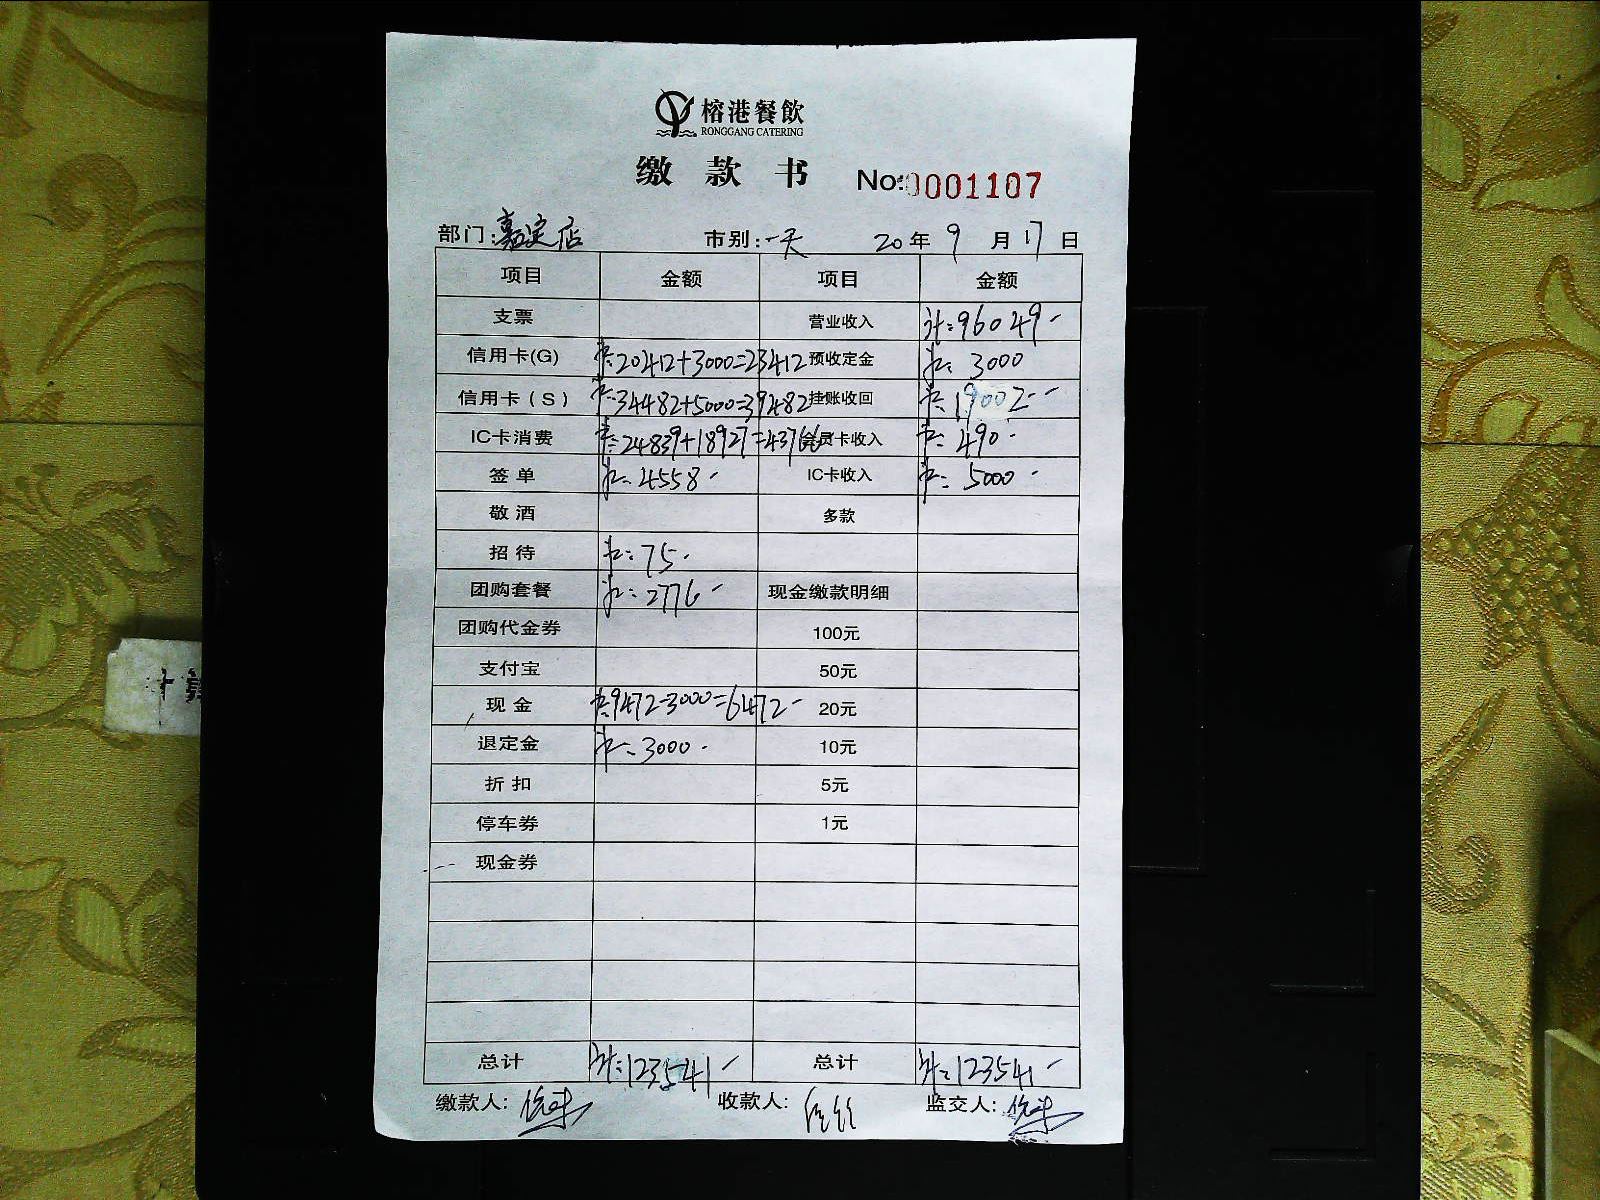 榕港餐飲
RONGGANG CATERING
缴款书 No:0001107
部门:嘉定店 市别:一天 20年9月17日
项目 金额 项目 金额
支票 营业收入 计:96049-
信用卡(G) 卡:20412+3000=23412 预收定金 卡:3000
信用卡(S) 卡:34482+5000=39482 挂账收回 卡:19002-
IC卡消费 卡:24839+18927=43766 会员卡收入 卡:490-
签单 卡:4558- IC卡收入 卡:5000-
敬酒 多款
招待 卡:75-
团购套餐 卡:2776- 现金缴款明细
团购代金券 100元
支付宝 50元
现金 卡:9472-3000=6472- 20元
退定金 卡:3000- 10元
折扣 5元
停车券 1元
现金券
总计 计:123541- 总计 计:123541-
缴款人: 收款人: 监交人: